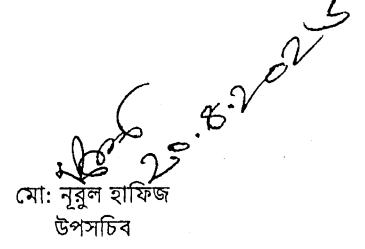 ২০.৪.২০২৬
মো: নূরুল হাফিজ
উপসচিব